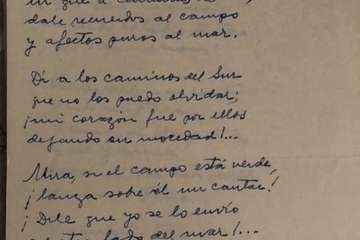 dale recuerdos al campo
y afectos puros al mar.
Di a los caminos del Sur
que no los puedo olvidar;
¡mi corazón fue por ellos
dejando su mocedad!...
Mira, si el campo está verde,
¡lanza sobre él un cantar!
¡Dile que yo se lo envío
lado del mar!...